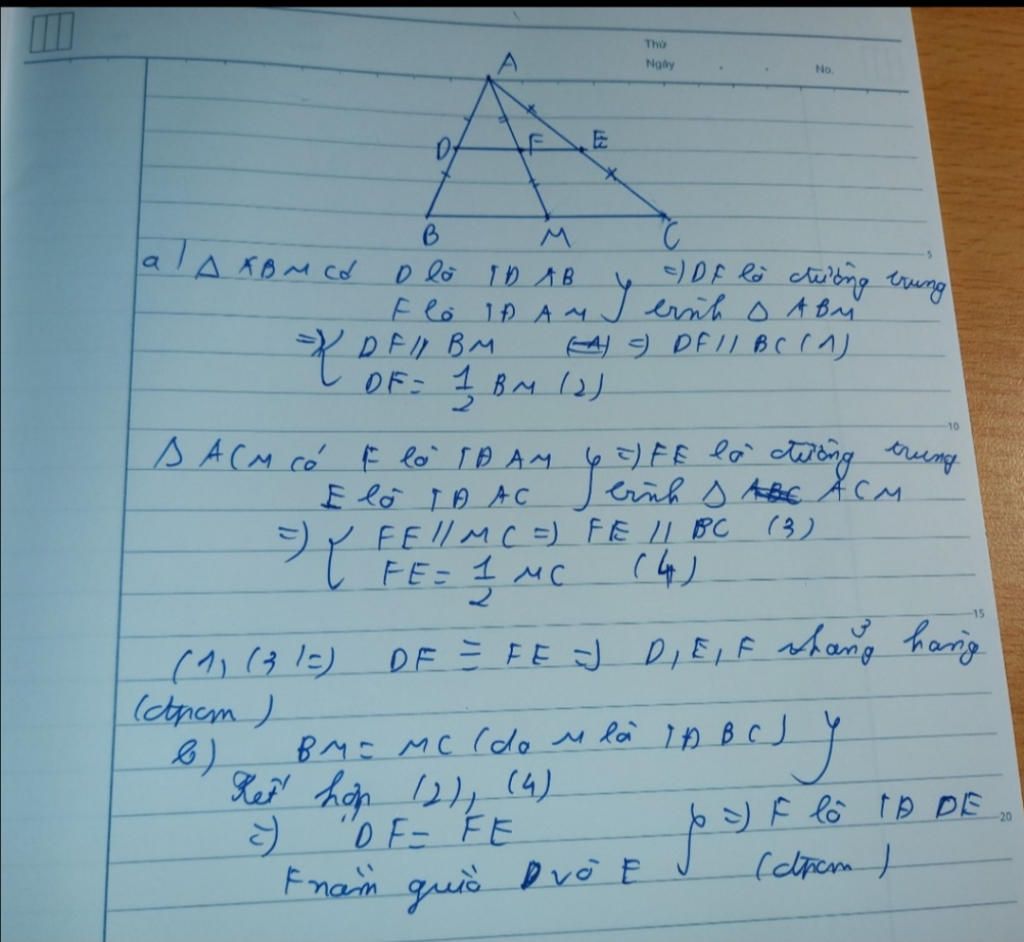 Thứ
Ngày . . No.
A
D F E
B M C
a) Δ ABM có D là TĐ AB } => DF là đường trung
F là TĐ AM } bình Δ ABM
=> { DF // BM => DF // BC (1)
DF = 1/2 BM (2)
Δ ACM có F là TĐ AM } => FE là đường trung
E là TĐ AC } bình Δ ACM
=> { FE // MC => FE // BC (3)
FE = 1/2 MC (4)
(1), (3) => DF ≡ FE => D, E, F thẳng hàng
(đpcm)
b) BM = MC (do M là TĐ BC) }
Kết hợp (2), (4)
=> DF = FE } => F là TĐ DE
F nằm giữa D và E } (đpcm)
5
10
15
20